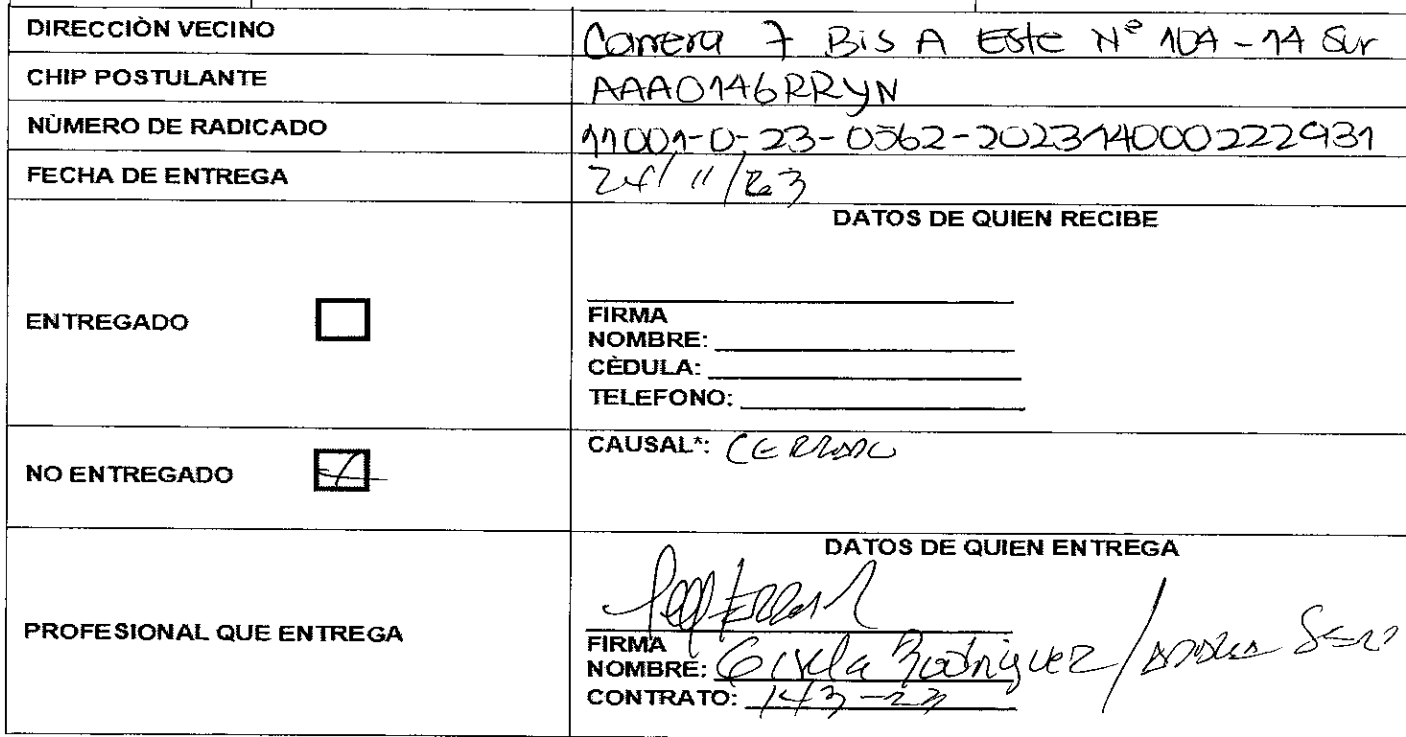 DIRECCIÒN VECINO Carrera 7 Bis A Este N° 104-14 Sur
CHIP POSTULANTE AAA0146RRYN
NÙMERO DE RADICADO 11001-0-23-0562-202314000222931
FECHA DE ENTREGA 24/11/23
DATOS DE QUIEN RECIBE
ENTREGADO
FIRMA
NOMBRE:
CÈDULA:
TELEFONO:
NO ENTREGADO
CAUSAL*: CERRADO
DATOS DE QUIEN ENTREGA
PROFESIONAL QUE ENTREGA
FIRMA
NOMBRE: Gisela Rodriguez /
CONTRATO: 143-23